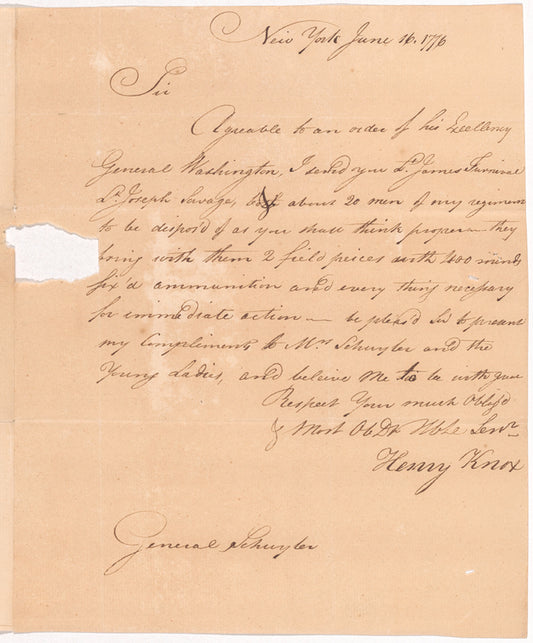 New York June 16. 1776
Sir
Agreable to an order of his Excellency
General Washington, I send you Lt. James Furnival
Lt. Joseph Savage, & about 20 men of my regiment
to be dispos'd of as you shall think proper — they
bring with them 2 field peices with 400 rounds
fix'd ammunition and every thing necessary
for immediate action — be pleas'd Sir to present
my Compliments to Mrs Schuyler and the
Young Ladies, and beleive me to be with great
Respect Your much Oblig'd
& Most ObDt Hble Servt
Henry Knox
General Schuyler